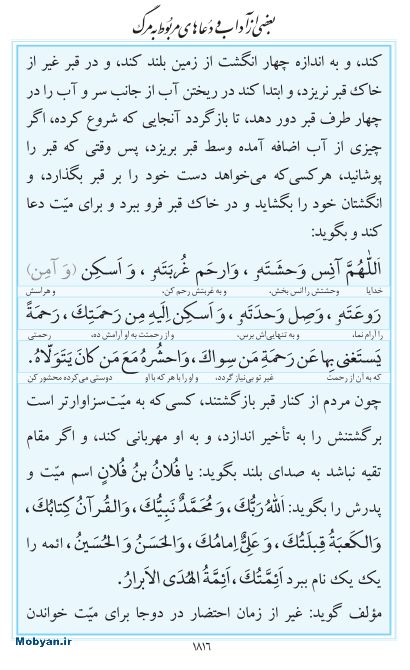 بعضی از آداب و دعاهای مربوط به مرگ
کند، و به اندازه چهار انگشت از زمین بلند کند، و در قبر غیر از
خاک قبر نریزد، و ابتدا کند در ریختن آب از جانب سر و آب را در
چهار طرف قبر دور دهد، تا بازگردد آنجایی که شروع کرده، اگر
چیزی از آب اضافه آمده وسط قبر بریزد، پس وقتی که قبر را
پوشانید، هرکسی‌که می‌خواهد دست خود را بر قبر بگذارد، و
انگشتان خود را بگشاید و در خاک قبر فرو ببرد و برای میّت دعا
کند و بگوید:
اَللّٰهُمَّ آنِس وَحشَتَهُ، وَارحَم غُربَتَهُ، وَ اَسکِن (وَ آمِن)
خدایا وحشتش را انس بخش، و به غربتش رحم کن، و هراسش
رَوعَتَهُ، وَصِل وَحدَتَهُ، وَ اَسکِن اِلَیهِ مِن رَحمَتِكَ، رَحمَةً
را آرام نما، و به تنهایی‌اش برس، و از رحمتت به او آرامش ده، رحمتی
یَستَغنی بِها عَن رَحمَةِ مَن سِواكَ، وَاحشُرهُ مَعَ مَن كانَ یَتَوَلّاهُ.
که به آن از رحمت غیر تو بی‌نیاز گردد، و او را با هر که با او دوستی می‌کرده محشور کن
چون مردم از کنار قبر بازگشتند، کسی‌که به میّت‌سزاوارتر است
برگشتنش را به تأخیر اندازد، و به او مهربانی کند، و اگر مقام
تقیه نباشد به صدای بلند بگوید: یا فُلانُ بنُ فُلانٍ اسم میّت و
پدرش را بگوید: اَللّٰهُ رَبُّكَ، وَ مُحَمَّدٌ نَبِیُّكَ، وَالقُرآنُ کِتابُكَ،
وَالکَعبَةُ قِبلَتُكَ، وَ عَلیٌّ اِمامُكَ، وَالحَسَنُ وَ الحُسَینُ، ائمه را
یک یک نام ببرد اَئِمَّتُكَ، اَئِمَّةُ الهُدَی الاَبرارُ.
مؤلف گوید: غیر از زمان احتضار در دوجا برای میّت خواندن
۱۸۱۶
Mobyan.ir